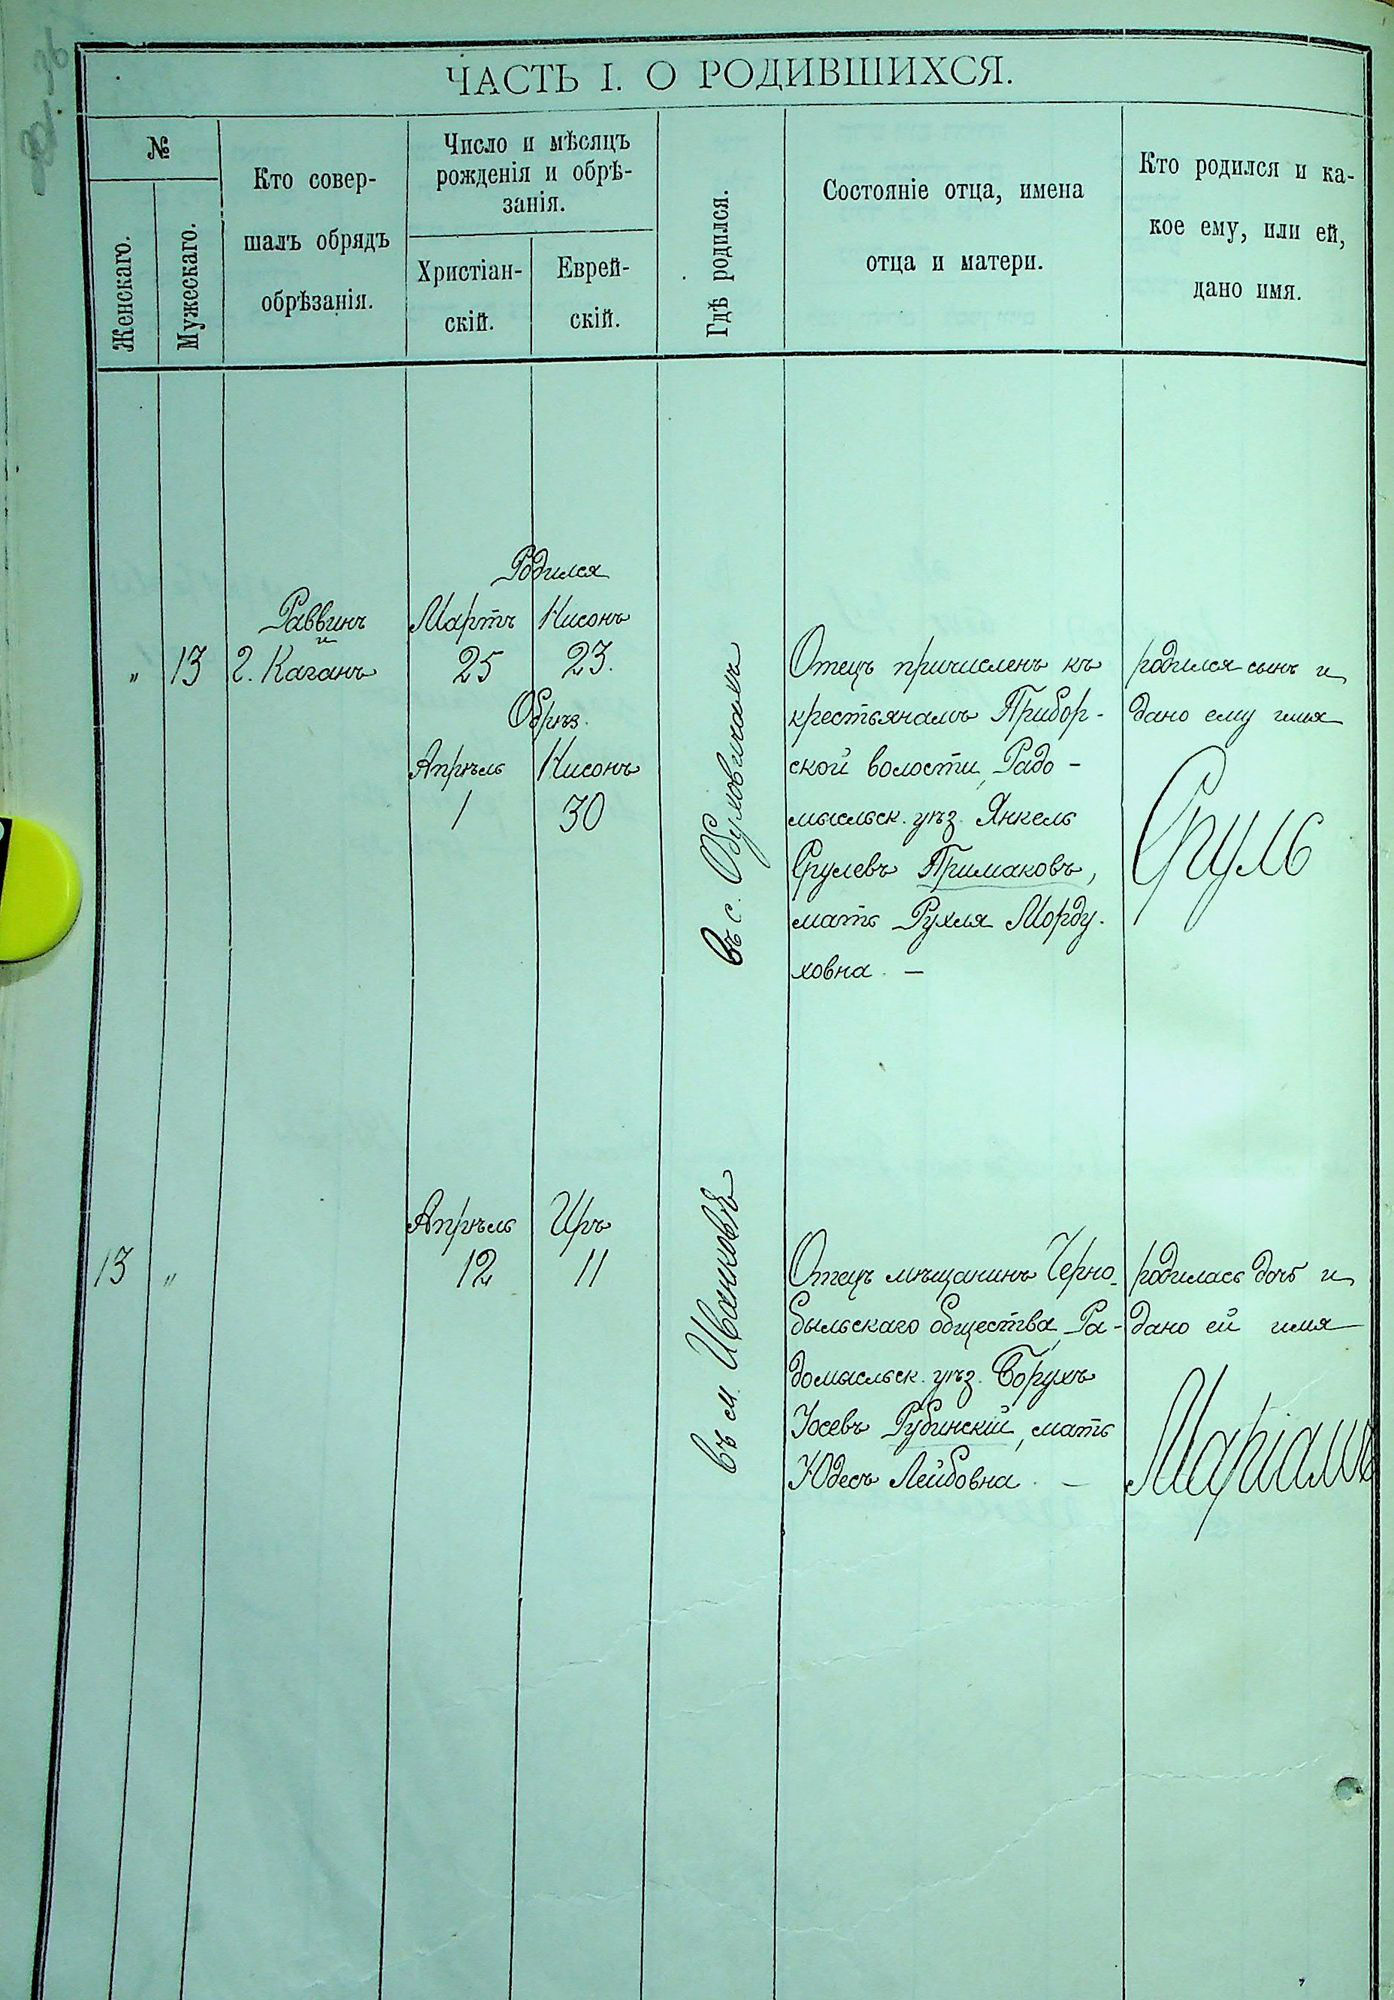 ЧАСТЬ I. О РОДИВШИХСЯ.
№
Женскаго.
Мужескаго.
Кто совер-
шалъ обрядъ
обрѣзанія.
Число и мѣсяцъ
рожденія и обрѣ-
занія.
Христіан-
скій.
Еврей-
скій.
Гдѣ родился.
Состояніе отца, имена
отца и матери.
Кто родился и ка-
кое ему, или ей,
дано имя.
„ 13
Раввинъ
и
г. Каганъ
Родился
Мартъ Нисонъ
25 23.
Обрѣз.
Апрѣль Нисонъ
1 30
въ с. Обуховичахъ
Отецъ причисленъ къ
крестьянамъ Прибор-
ской волости, Радо-
мысльск. уѣз. Янкель
Срулевъ Примаковъ,
мать Рухля Морду-
ховна. —
родился сынъ и
дано ему имя
Сруль
13 „
Апрѣль Иръ
12 11
въ м. Иванковѣ
Отецъ мѣщанинъ Черно-
быльскаго общества, Ра-
домысльск. уѣз. Борухъ
Іосевъ Рубинскій, мать
Юдесъ Лейбовна. —
родилась дочь и
дано ей имя
Маріамъ